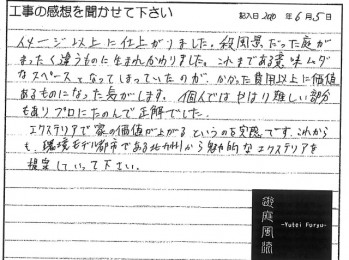 工事の感想を聞かせて下さい
記入日 2010 年 6 月 5 日
イメージ以上に仕上がりました。殺風景だった庭が
まったく違うものに生まれかわりました。これまである意味ムダ
なスペースとなってしまっていたのが、かかった費用以上に価値
あるものになった気がします。個人ではやはり難しい部分
もありプロにたのんで正解でした。
エクステリアで家の価値が上がるというのを実感です。これから
も、環境モデル都市である北九州から魅力的なエクステリアを
提案していって下さい。
遊庭風流
-Yutei Furyu-